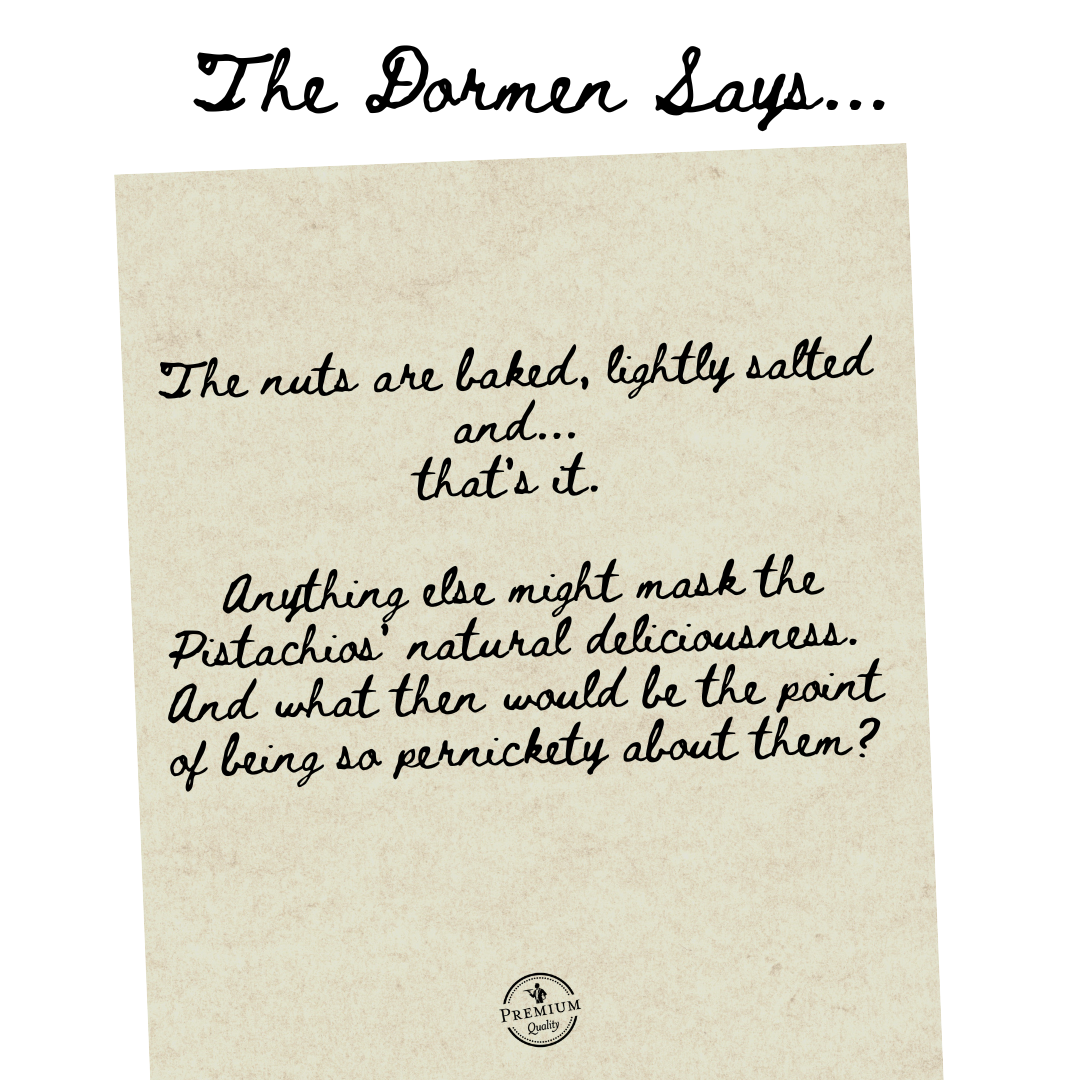 The Dormen Says...
The nuts are baked, lightly salted
and...
that's it.
Anything else might mask the
Pistachios' natural deliciousness.
And what then would be the point
of being so pernickety about them?
PREMIUM
Quality